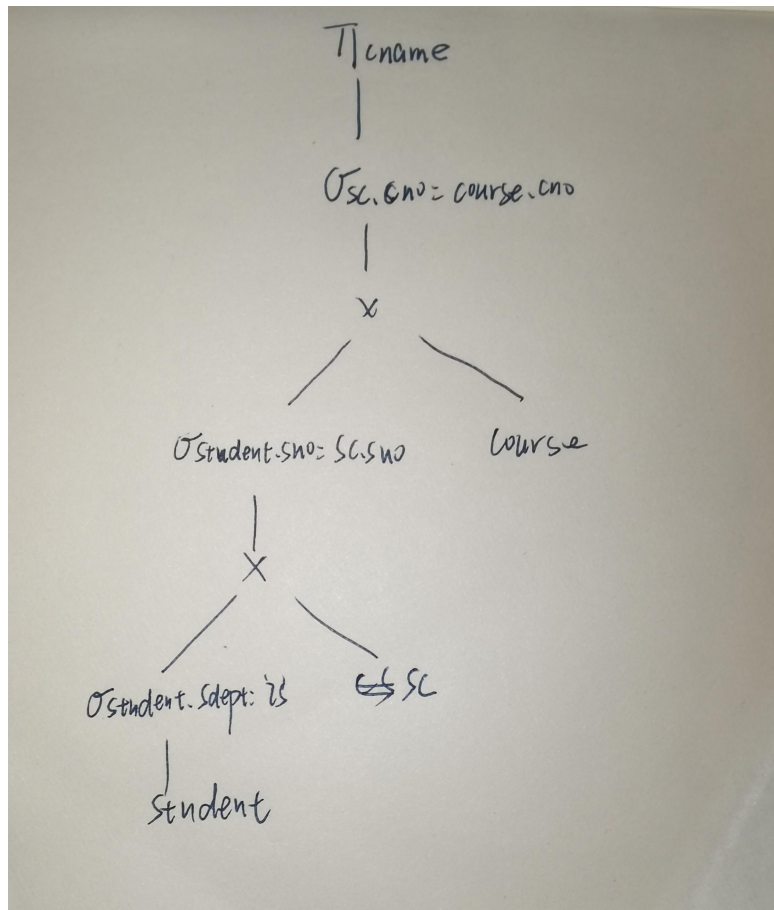 Πcname
σsc.cno=course.cno
×
σstudent.sno=sc.sno course
×
σstudent.sdept='is' SC
student